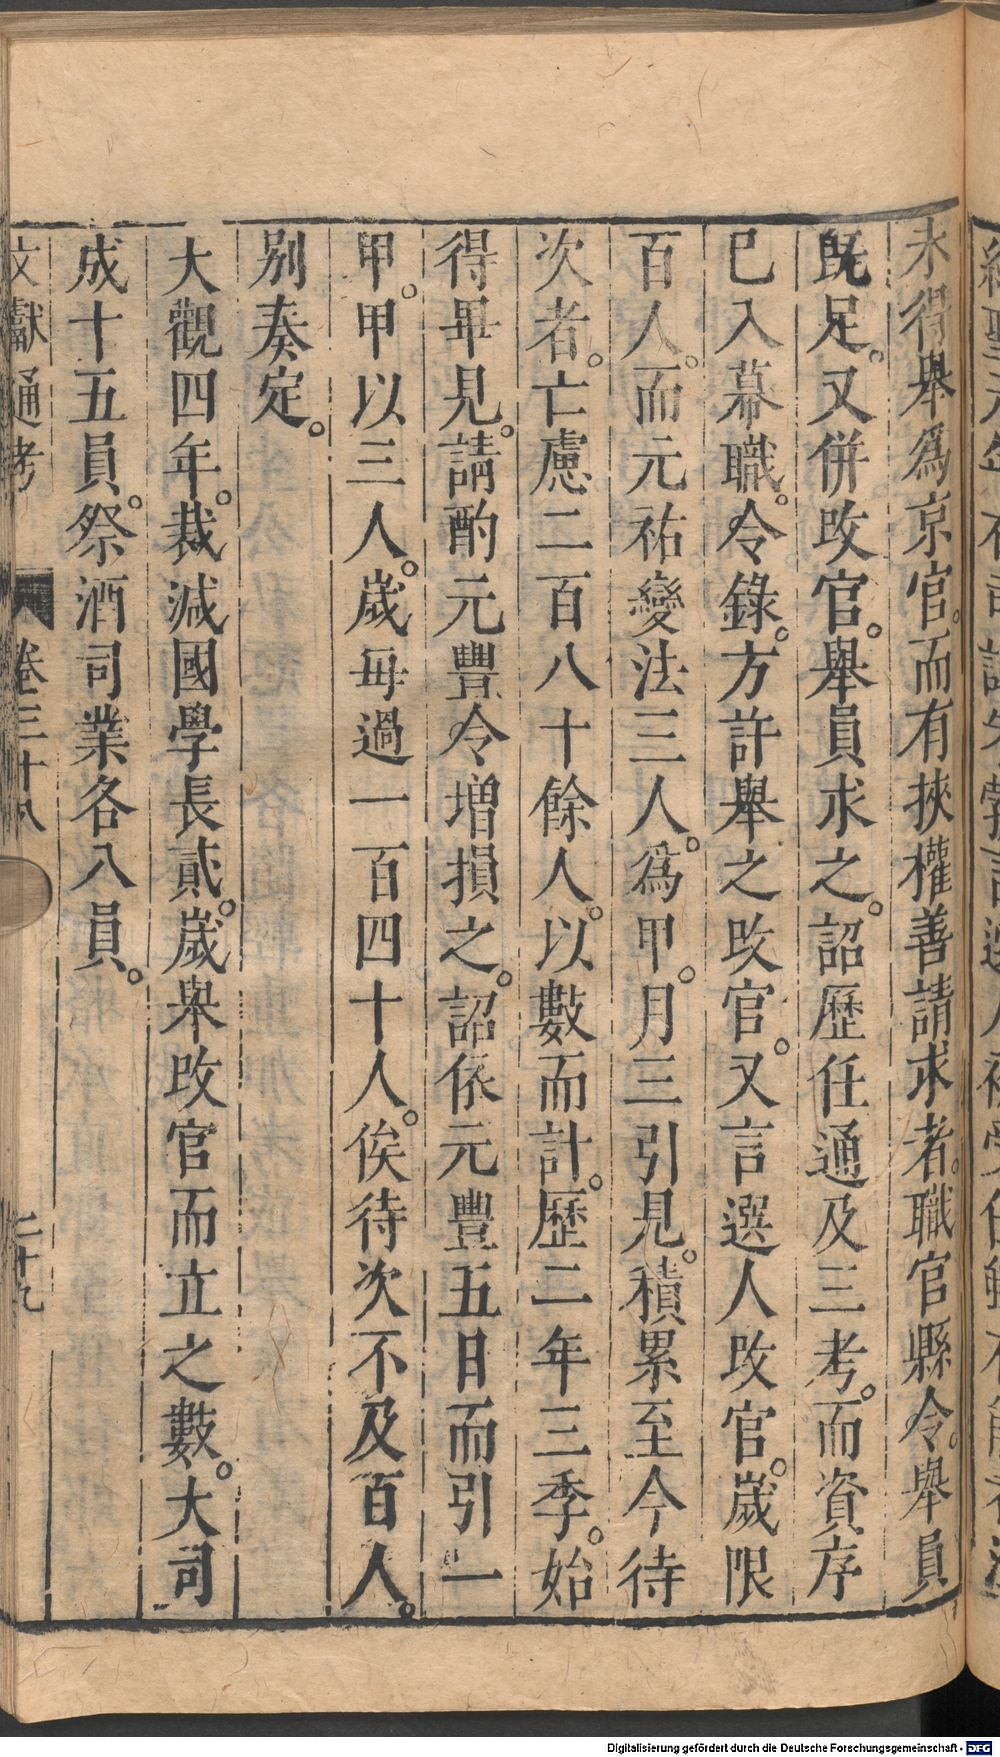 未得舉爲京官。而有挾權善請求者。職官縣令。舉員
既足。又併改官。舉員求之。詔歷任通及三考。而資序
已入幕職。令錄。方許舉之改官。又言選人改官。歲限
百人。而元祐變法三人。爲甲。月三引見。積累至今待
次者。亡慮二百八十餘人。以數而計。歷二年三季。始
得畢見。請酌元豐令增損之。詔依元豐五日而引一
甲。甲以三人。歲毎過一百四十人。俟待次不及百人。
别奏定。
大觀四年。裁減國學長貳。歲舉改官而立之數。大司
成十五員。祭酒司業各八員。
文獻通考
卷三十八
二十九
Digitalisierung gefördert durch die Deutsche Forschungsgemeinschaft - DFG